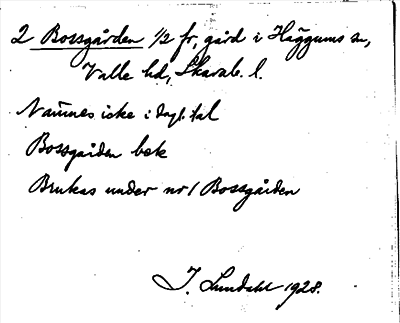 2 Bossgården 1/2 fr, gård i Häggums sn,
Valle hd, Skarab. l.
Namnes icke i dagl. tal
Bossgården bek
Brukas under nr 1 Bossgården
J. Lundahl 1928.